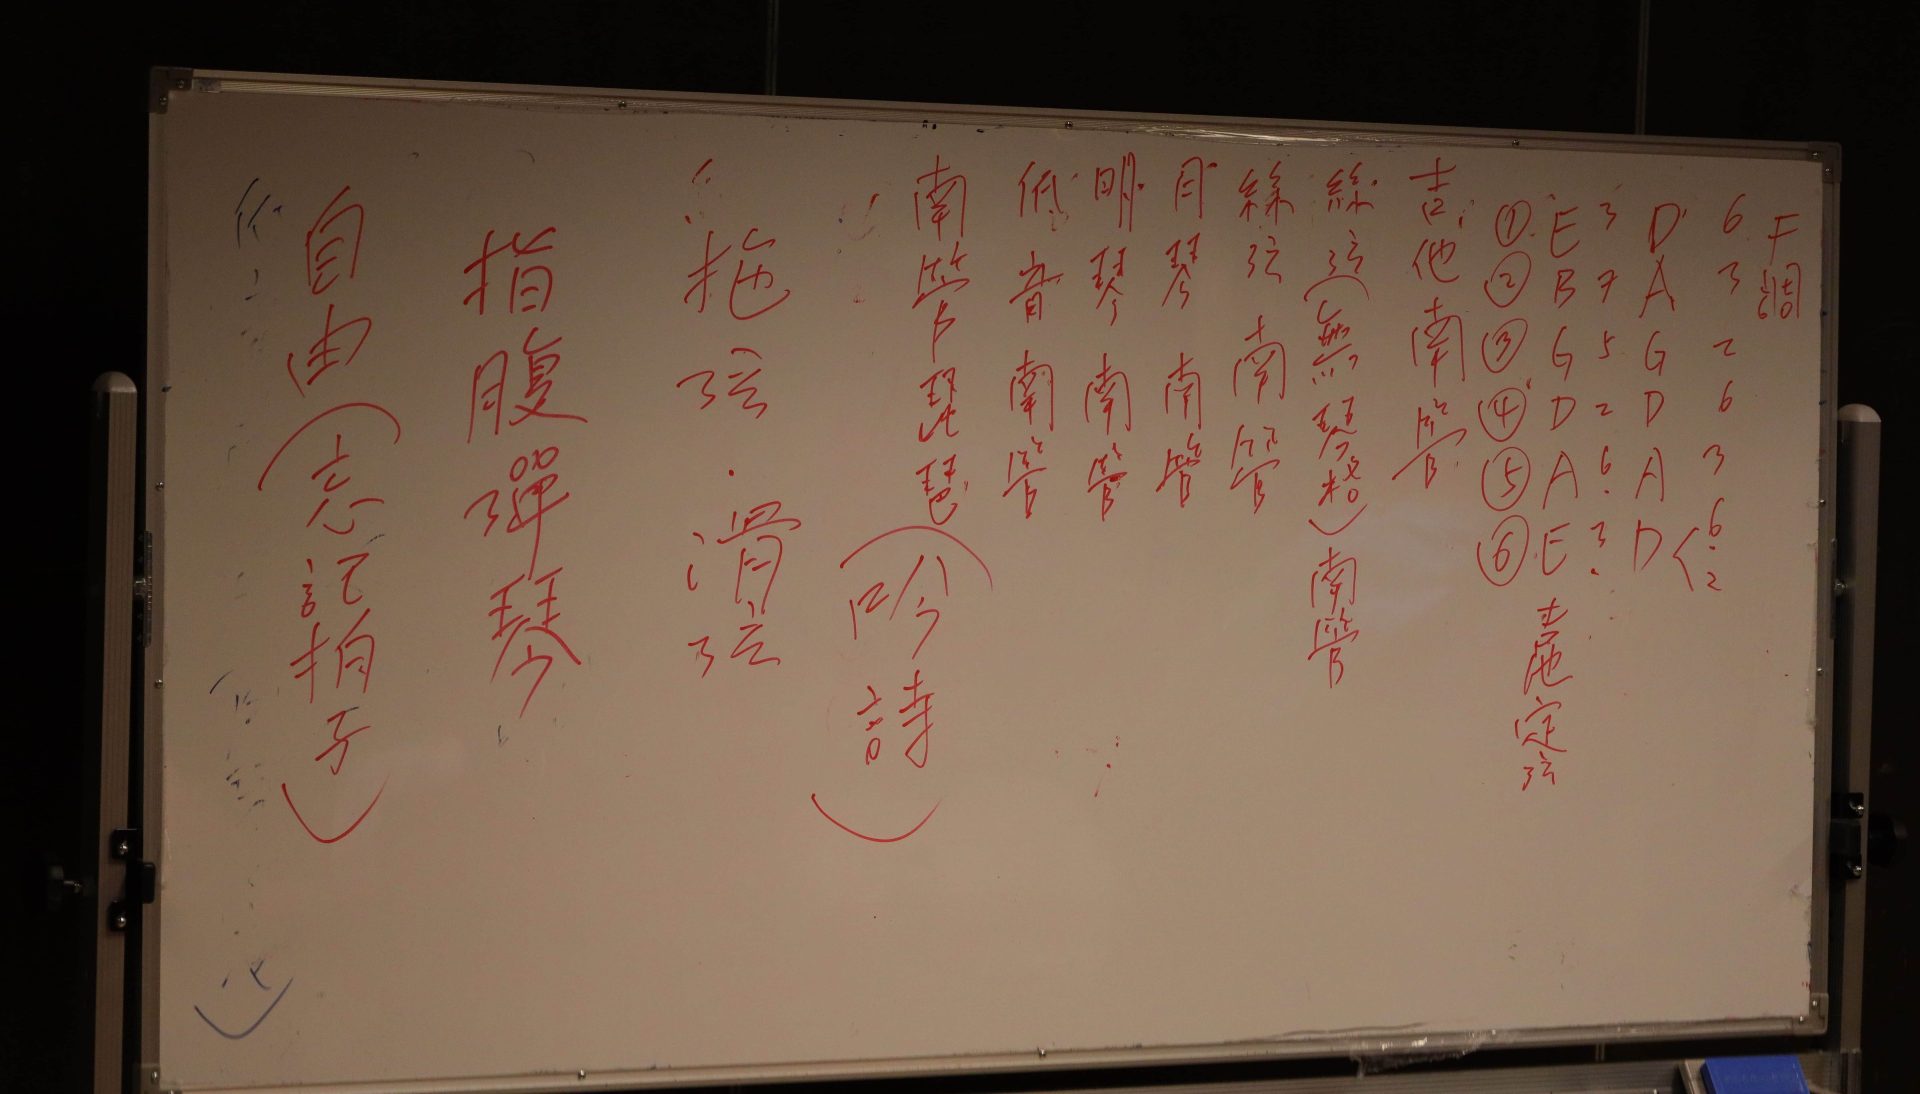 F調
6 3 2 6 3 6 2
D A G D A D
3 7 5 2 6 3
E B G D A E
① ② ③ ④ ⑤ ⑥
吉他定弦
吉他南管
絲弦(無琴格)南管
絲弦南管
月琴南管
明琴南管
低音南管
南管琵琶
(吟詩)
拖弦.滑弦
指腹彈琴
自由(忘記拍子)